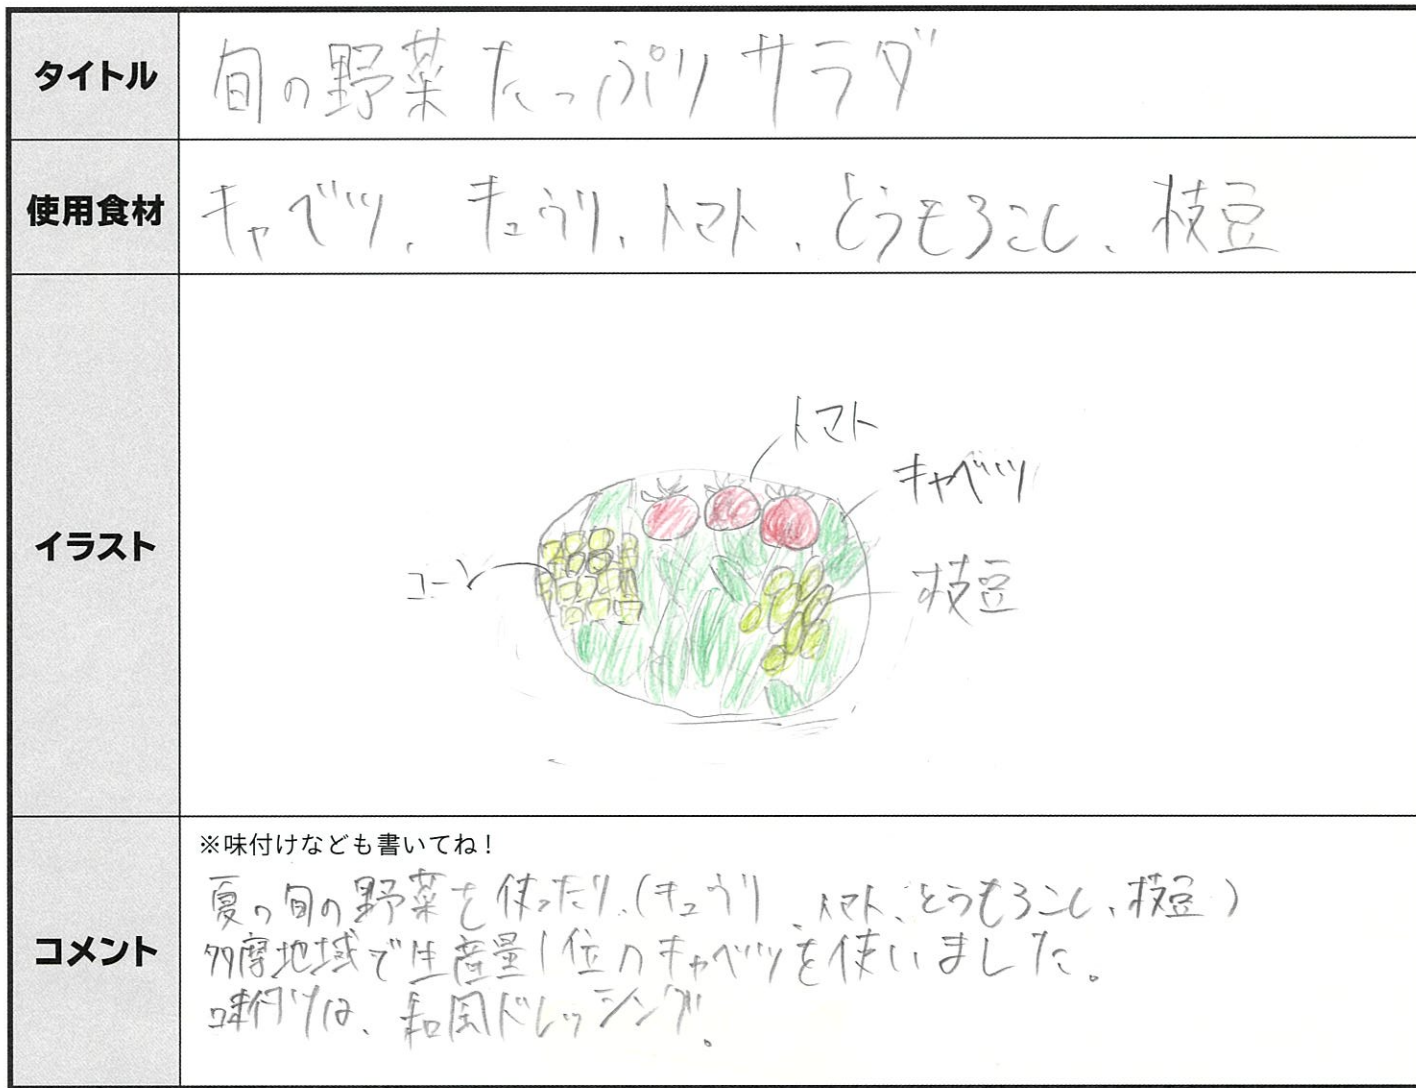 タイトル
旬の野菜たっぷりサラダ
使用食材
キャベツ、キュウリ、トマト、とうもろこし、枝豆
イラスト
トマト
キャベツ
コーン
枝豆
コメント
※味付けなども書いてね！
夏の旬の野菜を使ったり、(キュウリ、トマト、とうもろこし、枝豆)
多摩地域で生産量1位のキャベツを使いました。
味付けは、和風ドレッシング。